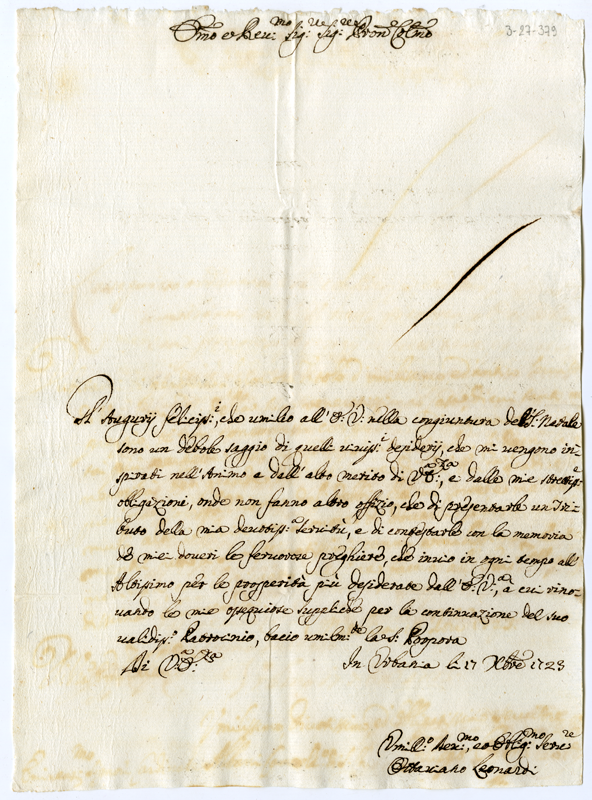 Emo e Rev:mo Sig:re Sig:re Pron Colmo
3-27-379
Gl'Augurij feliciss:i, che umilio all'E: V: nella congiuntura del S. Natale
sono un debole saggio di quelli viviss:i desiderij, che mi vengono in-
spirati nell'Animo a dall'alto merito di V: E:za, e dalle mie strettiss:e
obligazioni, onde non fanno altro offizio, che di presentarle un Tri-
buto della mia devotiss:a servitù, e di contestarle con la memoria
de miei doveri le fervorose preghiere, che invio in ogni tempo all'
Altissimo per le prosperità più desiderate dall'E: V:, a cui rino-
vando le mie ossequiose suppliche per la continuazione del suo
validiss:o Patrocinio, bacio umilm:te la S: Porpora
Di V: E:za In Urbania li 17 Xbre 1723
Umill:o Dev:mo, et Oblig:mo Serre
Ottaviano Leonardi